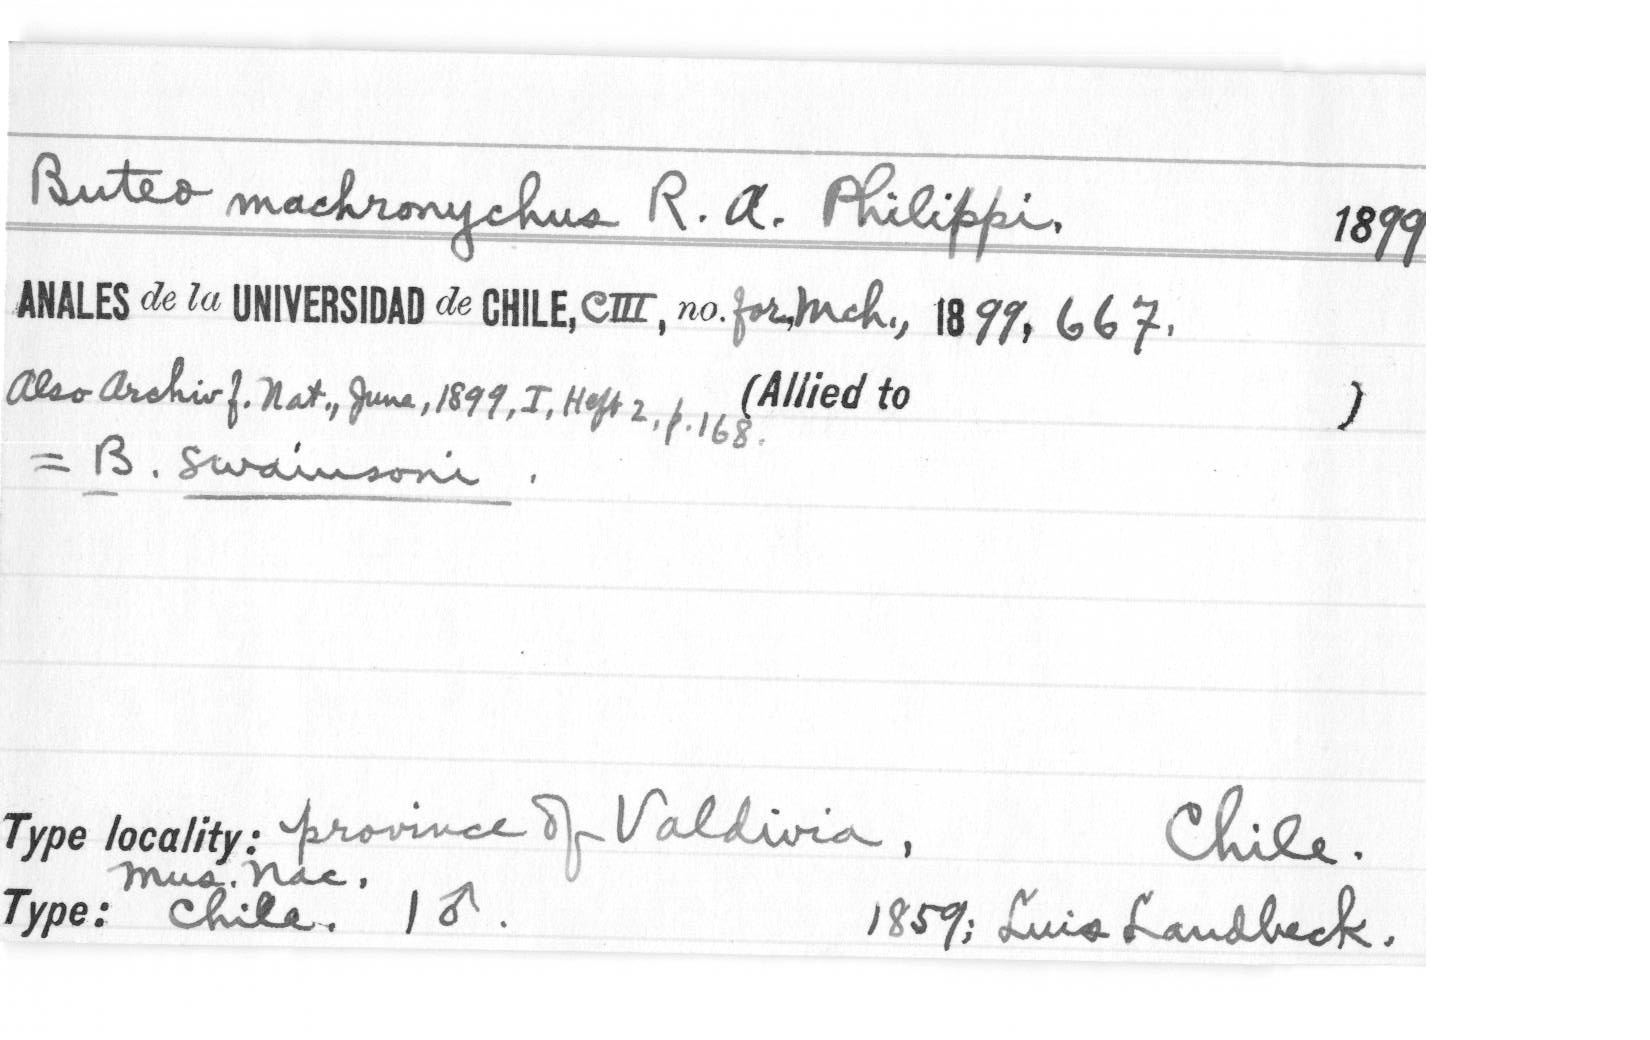 Buteo machronychus R. A. Philippi. 1899
ANALES de la UNIVERSIDAD de CHILE, CIII, no. for, Mch., 1899, 667.
Also Archiv f. Nat., June, 1899, I, Heft 2, p. 168. (Allied to )
= B. swainsoni.
Type locality: province of Valdivia, Chile.
Mus. Nac.
Type: Chile. 1 ♂. 1859; Luis Landbeck.